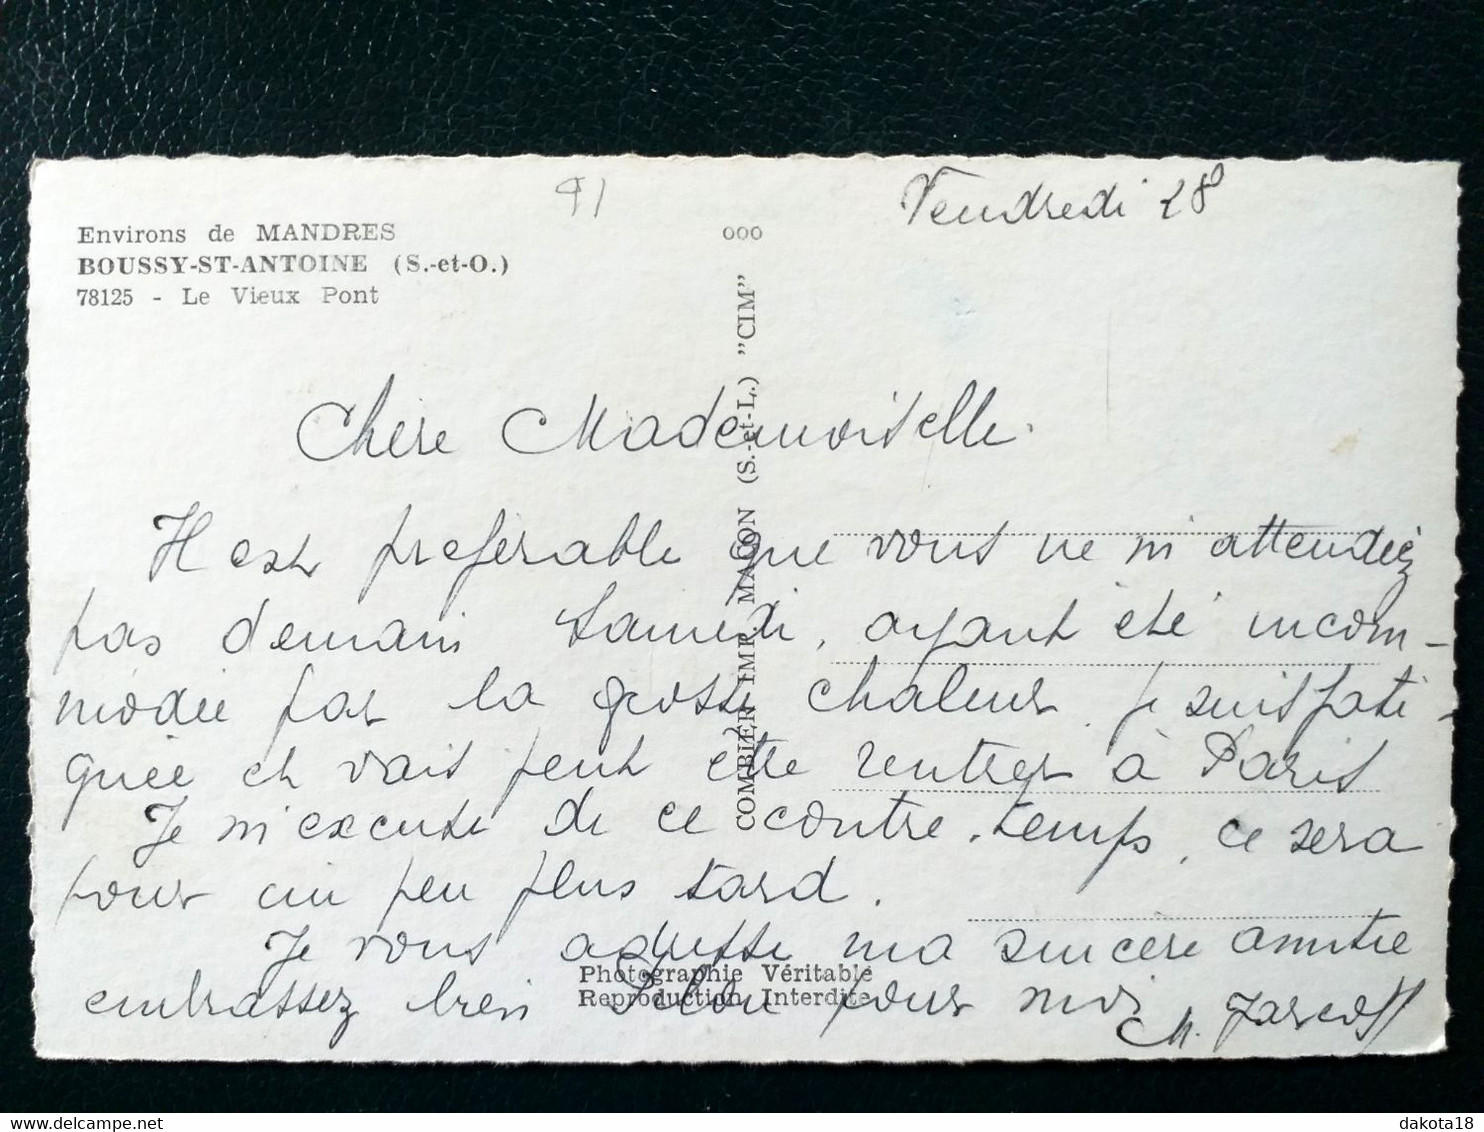 91
Vendredi 28
Environs de MANDRES
BOUSSY-ST-ANTOINE (S.-et-O.)
78125 - Le Vieux Pont
ooo
COMBIER IMP. MACON (S.-et-L.) "CIM"
Chère Mademoiselle.
Il est préférable que vous ne m'attendiez
pas demain Samedi, ayant été incom-
modée par la grosse chaleur. je suis fati-
guée et vais peut être rentrer à Paris
Je m'excuse de ce contre-temps, ce sera
pour un peu plus tard.
Je vous adresse ma sincère amitié
embrassez bien pour moi
Photographie Véritable
Reproduction Interdite
dakota18